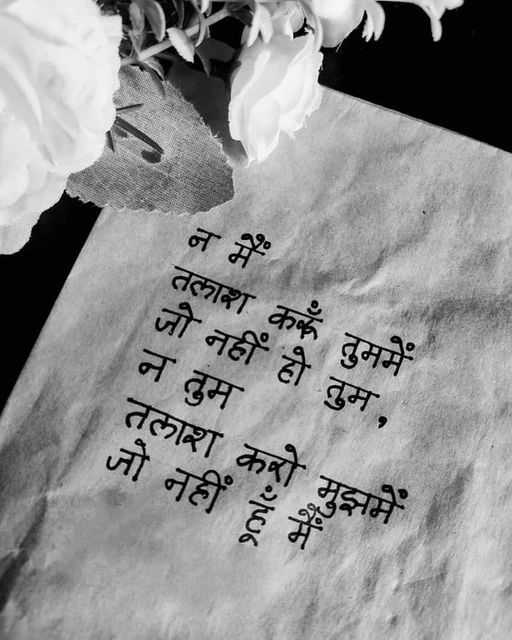 न मैं
तलाश करूँ तुममें
जो नहीं हो तुम,
न तुम
तलाश करो मुझमें
जो नहीं हूँ मैं